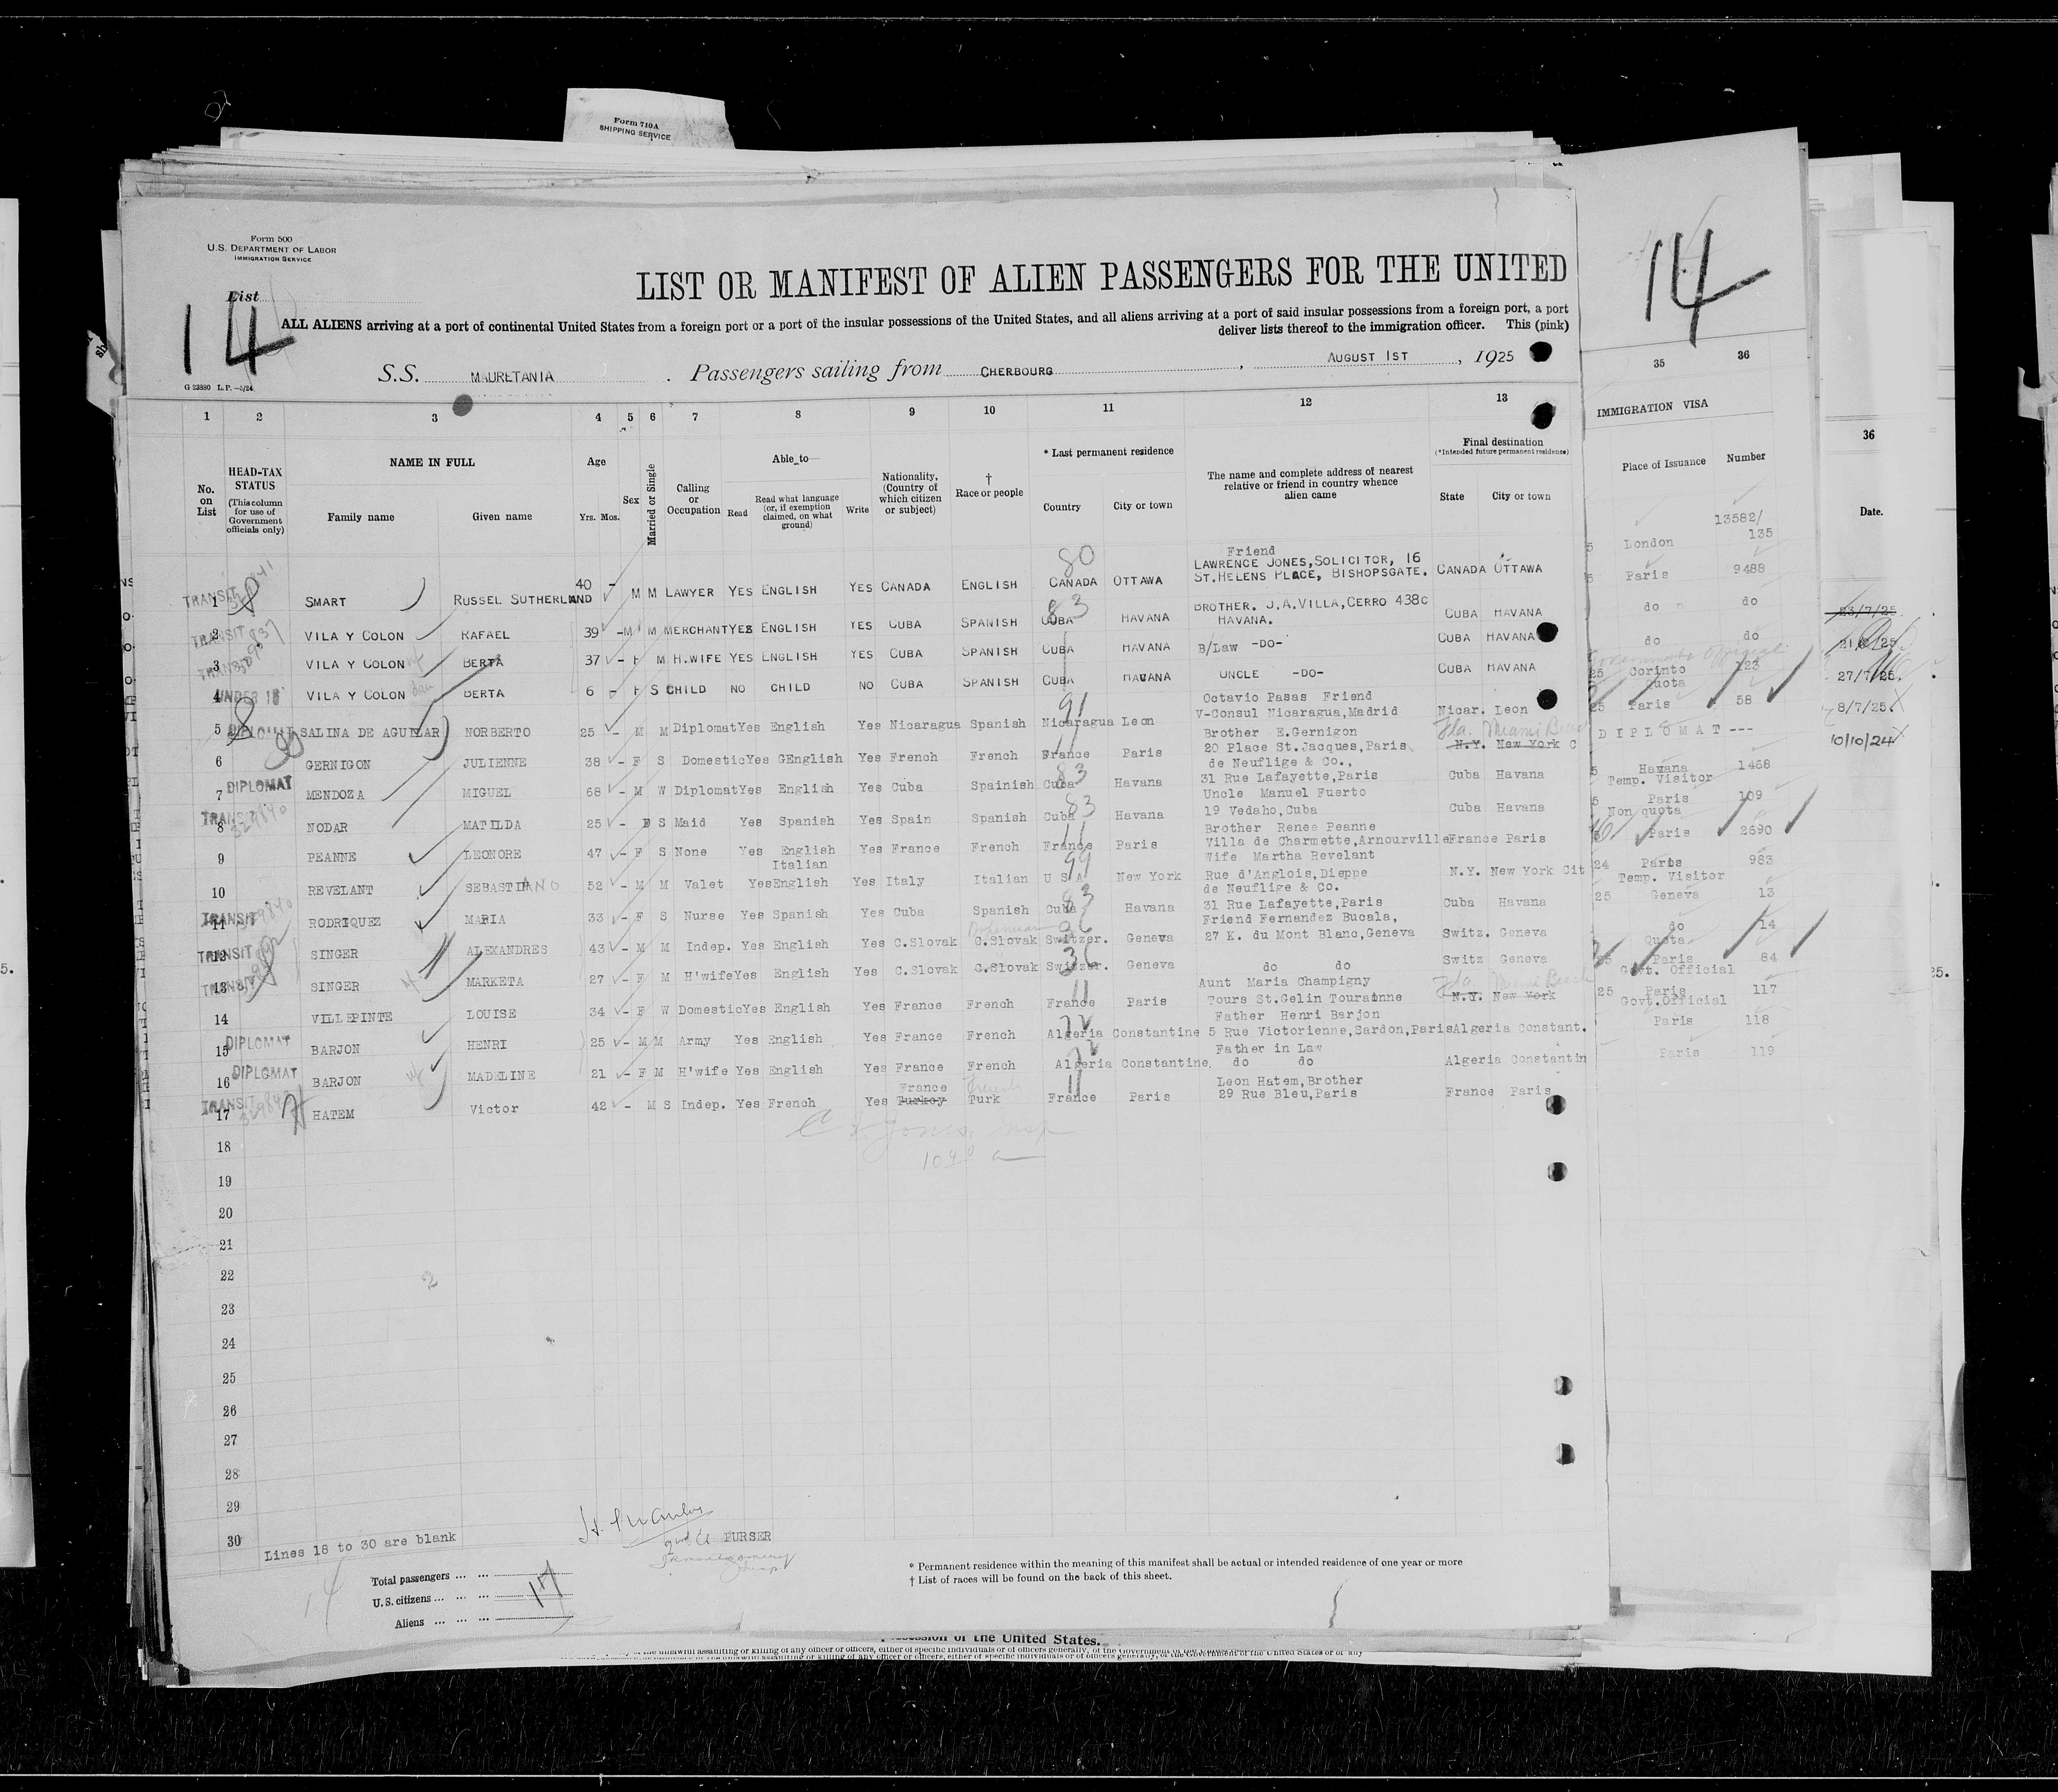 Form 710A
SHIPPING SERVICE
Form 500
U.S. DEPARTMENT OF LABOR
IMMIGRATION SERVICE
List
14
14
LIST OR MANIFEST OF ALIEN PASSENGERS FOR THE UNITED
ALL ALIENS arriving at a port of continental United States from a foreign port or a port of the insular possessions of the United States, and all aliens arriving at a port of said insular possessions from a foreign port, a port
deliver lists thereof to the immigration officer. This (pink)
S.S. MAURETANIA . Passengers sailing from CHERBOURG , AUGUST 1ST , 1925
G 23880 L.P.—5/24
1 2 3 4 5 6 7 8 9 10 11 12 13 35 36
No. on List
HEAD-TAX STATUS (This column for use of Government officials only)
NAME IN FULL
Family name Given name
Age
Yrs. Mos.
Sex
Married or Single
Calling or Occupation
Able to
Read Read what language (or, if exemption claimed, on what ground) Write
Nationality, (Country of which citizen or subject)
† Race or people
* Last permanent residence
Country City or town
The name and complete address of nearest relative or friend in country whence alien came
Final destination
(*Intended future permanent residence)
State City or town
IMMIGRATION VISA
Place of Issuance Number
36
Date.
TRANSIT 1 SMART RUSSEL SUTHERLAND 40 - M M LAWYER YES ENGLISH YES CANADA ENGLISH 80 CANADA OTTAWA Friend LAWRENCE JONES, SOLICITOR, 16 ST.HELENS PLACE, BISHOPSGATE. CANADA OTTAWA
TRANSIT 2 VILA Y COLON RAFAEL 39 - M M MERCHANT YES ENGLISH YES CUBA SPANISH 83 CUBA HAVANA BROTHER. J.A.VILLA, CERRO 438C HAVANA. CUBA HAVANA
TRANSIT 3 VILA Y COLON BERTA 37 - F M H.WIFE YES ENGLISH YES CUBA SPANISH CUBA HAVANA B/LAW -DO- CUBA HAVANA
UNDER 16 4 VILA Y COLON BERTA 6 - F S CHILD NO CHILD NO CUBA SPANISH CUBA HAVANA UNCLE -DO- CUBA HAVANA
DIPLOMAT 5 SALINA DE AGUILAR NORBERTO 25 - M M Diplomat Yes English Yes Nicaragua Spanish 91 Nicaragua Leon Octavio Pasas Friend V-Consul Nicaragua, Madrid Nicar. Leon
6 GERNIGON JULIENNE 38 - F S Domestic Yes GEnglish Yes French French France Paris Brother E.Gernigon 20 Place St.Jacques, Paris Fla. Miami Beach N.Y. New York C
DIPLOMAT 7 MENDOZA MIGUEL 68 - M W Diplomat Yes English Yes Cuba Spainish 83 Cuba Havana de Neuflige & Co., 31 Rue Lafayette, Paris Cuba Havana
TRANSIT 8 NODAR MATILDA 25 - F S Maid Yes Spanish Yes Spain Spanish 83 Cuba Havana Uncle Manuel Fuerto 19 Vedaho, Cuba Cuba Havana
9 PEANNE LEONORE 47 - F S None Yes English Yes France French 11 France Paris Brother Renee Peanne Villa de Charmette, Arnourville France Paris
10 REVELANT SEBASTIANO 52 - M M Valet Yes Italian English Yes Italy Italian 99 U S A New York Wife Martha Revelant Rue d'Anglois, Dieppe N.Y. New York Cit
TRANSIT 11 RODRIQUEZ MARIA 33 - F S Nurse Yes Spanish Yes Cuba Spanish 83 Cuba Havana de Neuflige & Co. 31 Rue Lafayette, Paris Cuba Havana
TRANSIT 12 SINGER ALEXANDRES 43 - M M Indep. Yes English Yes C.Slovak Bohemian C.Slovak 36 Switzer. Geneva Friend Fernandez Bucala, 27 K. du Mont Blanc, Geneva Switz. Geneva
TRANSIT 13 SINGER MARKETA 27 - F M H'wife Yes English Yes C.Slovak C.Slovak 36 Switzer. Geneva do do Switz Geneva
14 VILLEPINTE LOUISE 34 - F W Domestic Yes English Yes France French 11 France Paris Aunt Maria Champigny Tours St.Gelin Tourainne Fla. Miami Beach N.Y. New York
DIPLOMAT 15 BARJON HENRI 25 - M M Army Yes English Yes France French Algeria Constantine Father Henri Barjon 5 Rue Victorienne, Sardon, Paris Algeria Constant.
DIPLOMAT 16 BARJON MADELINE 21 - F M H'wife Yes English Yes France French Algeria Constantine. Father in Law do do Algeria Constantin
TRANSIT 17 HATEM Victor 42 - M S Indep. Yes French Yes France Turkey French Turk 11 France Paris Leon Hatem, Brother 29 Rue Bleu, Paris France Paris
18
19
20
21
22
23
24
25
26
27
28
29
30
Lines 18 to 30 are blank
PURSER
Total passengers ... ...
U.S. citizens ... ... ... 17
Aliens ... ... ...
* Permanent residence within the meaning of this manifest shall be actual or intended residence of one year or more
† List of races will be found on the back of this sheet.
London 13582/135
Paris 9488
do do
do do
Corinto 123
quota
Paris 58
DIPLOMAT---
Havana 1468
Temp. Visitor
Paris 109
Non quota
Paris 2690
Paris 983
Temp. Visitor
Geneva 13
do 14
Quota
Paris 84
Govt. Official
Paris 117
Govt. Official
Paris 118
Paris 119
23/7/25
27/7/25.
8/7/25.
10/10/24
of the United States.